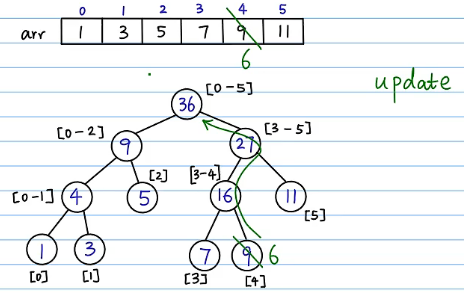 0 1 2 3 4 5
arr 1 3 5 7 9 11
6
update
36 [0-5]
[0-2] 9 27 [3-5]
[0-1] 4 5 [2] [3-4] 16 11 [5]
1 3 7 9 6
[0] [1] [3] [4]